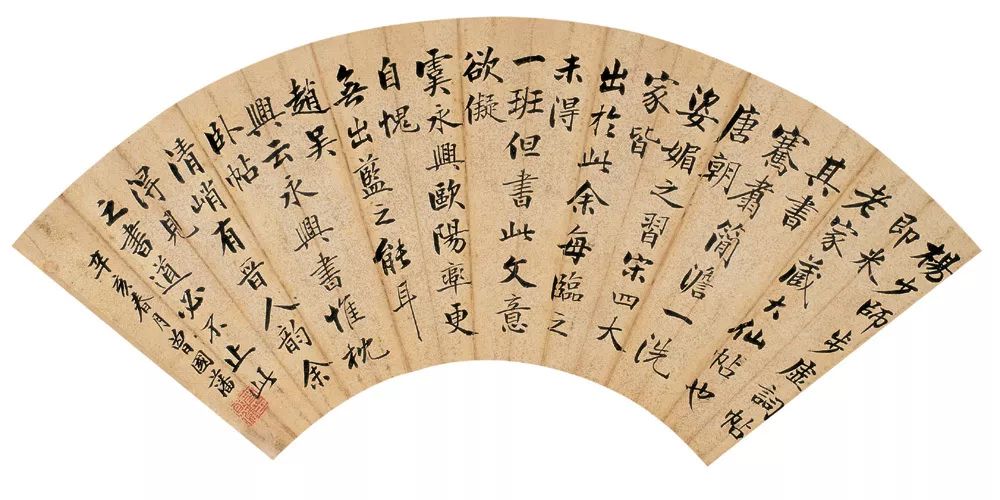 楊少師步虛詞帖
即米
老家藏大仙帖也
其書
騫翥簡澹一洗
唐朝
姿媚之習宋四大
家皆
出於此余每臨之
未得
一班但書此文意
欲儗
虞永興歐陽率更
自愧
無出藍之能耳
趙吳
興云永興書惟枕
臥帖
清峭有晉人韻余
淂見
之書道必不止此
辛亥春月曾國藩